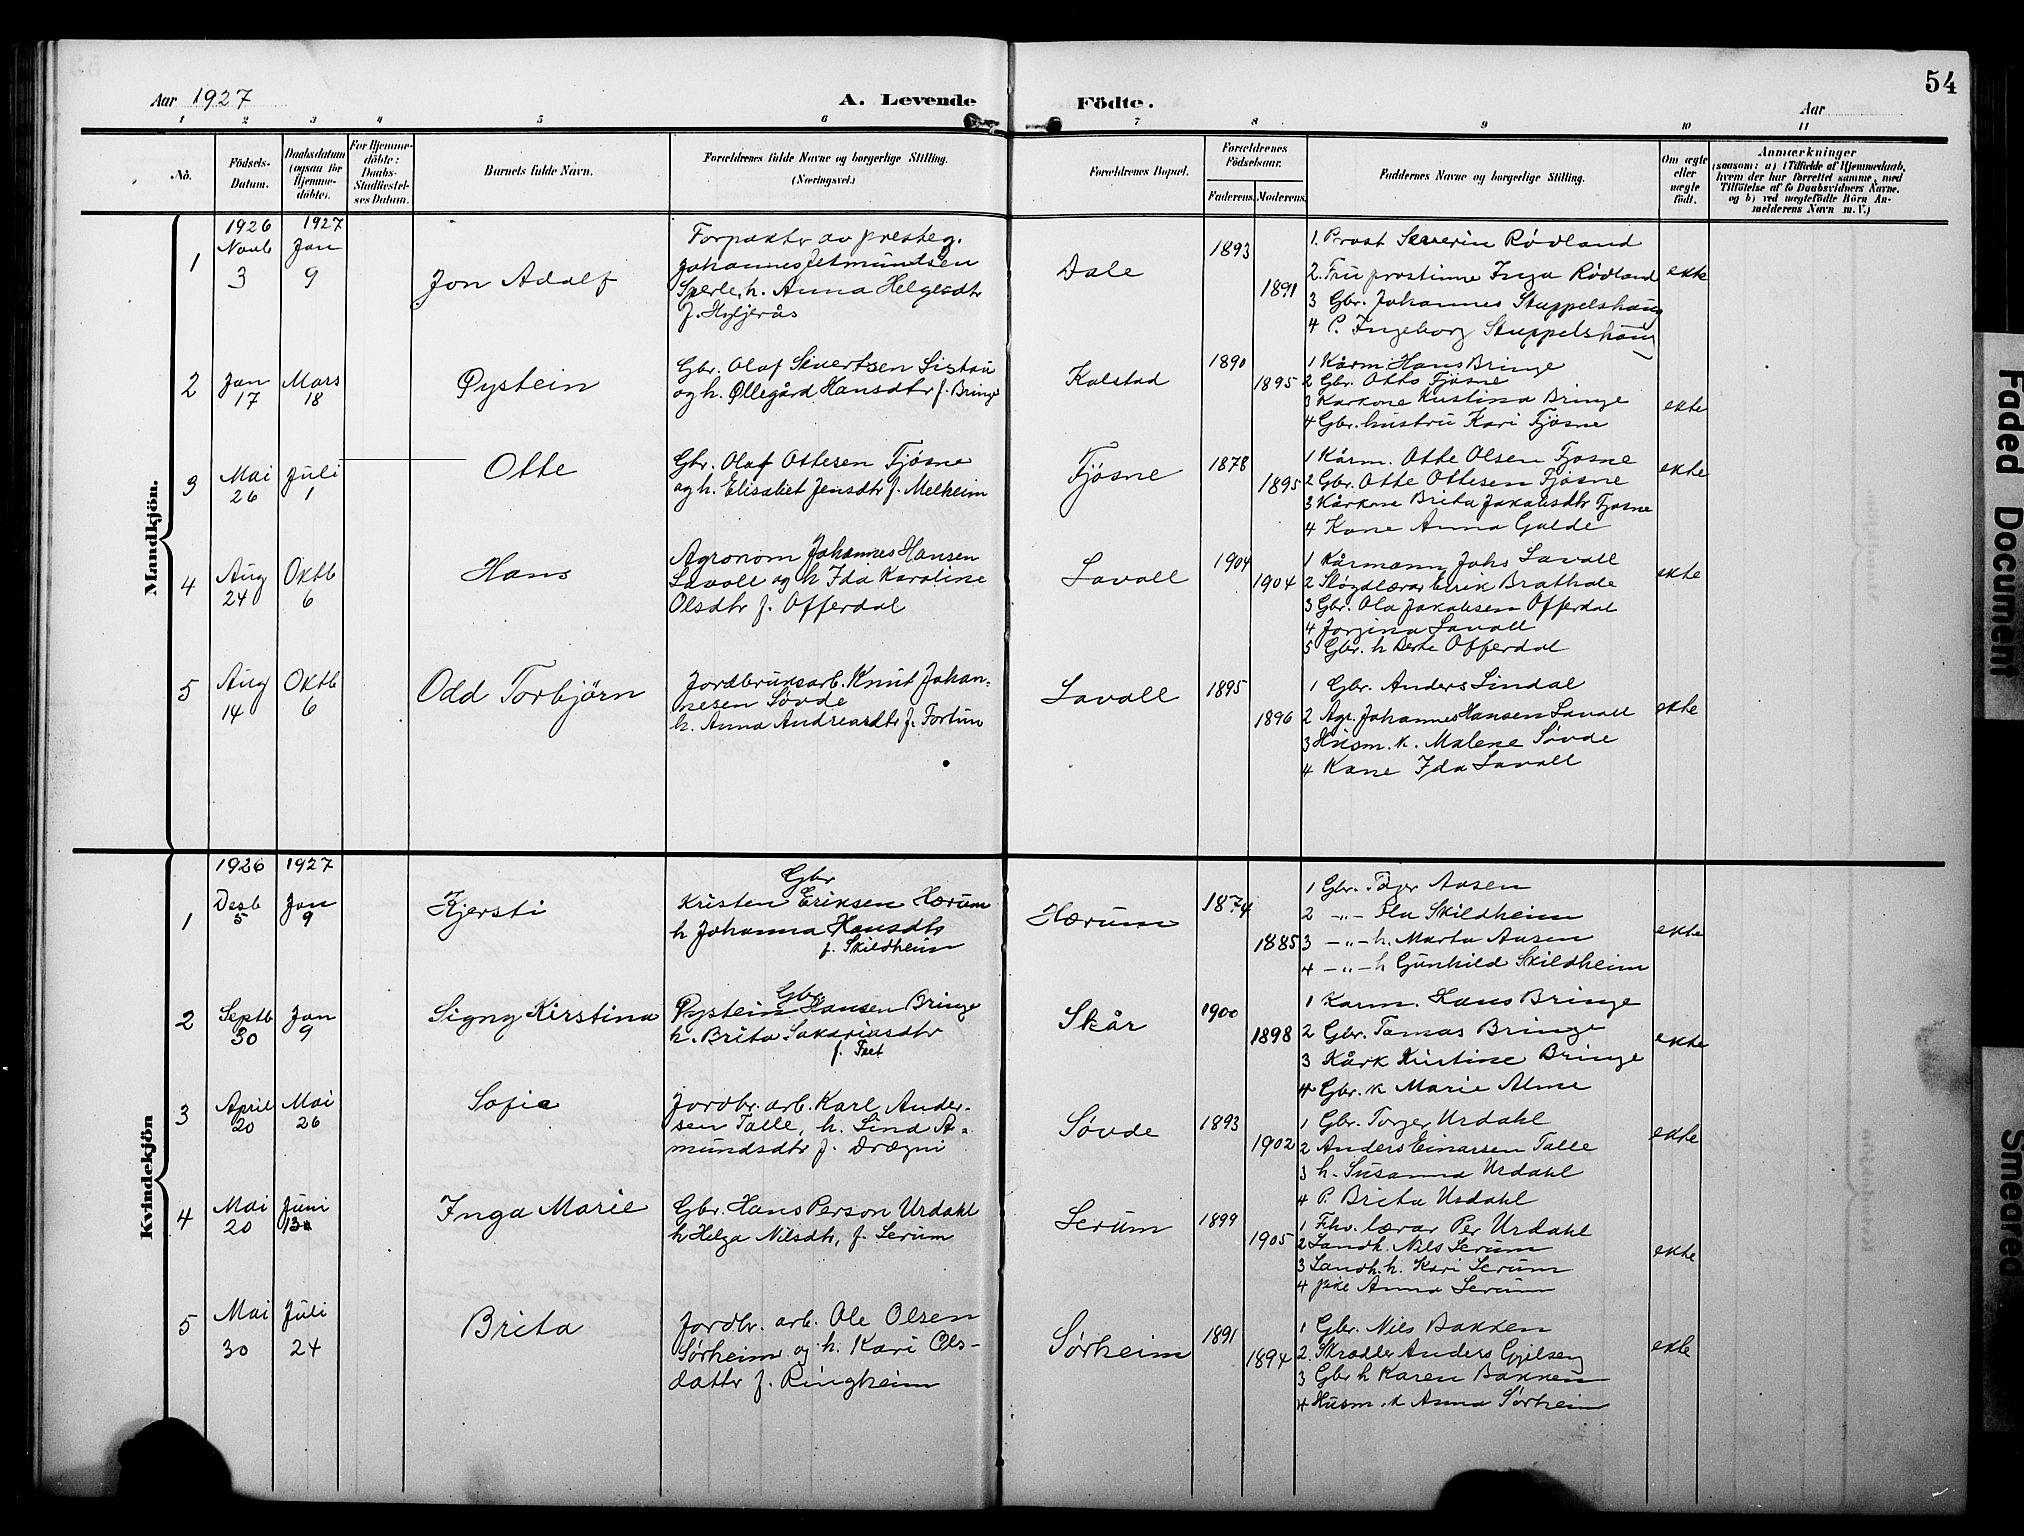 54
Aar 1927
A. Levende Födte.
Aar
1 2 3 4 5 6 7 8 9 10 11
No.
Födsels-Datum.
Daabsdatum (ogsaa for Hjemme-döbte).
For Hjemme-döbte: Daabs-Stadfæstel-ses Datum.
Barnets fulde Navn.
Forældrenes fulde Navne og borgerlige Stilling. (Næringsvei.)
Forældrenes Bopæl.
Forældrenes Födselsaar.
Faderens. Moderens.
Faddernes Navne og borgerlige Stilling.
Om ægte eller uægte født.
Anmærkninger
(saasom: a) i Tilfælde af Hjemmedaab, hvem der har forrettet samme, med Tilföielse af to Daabsvidners Navne, og b) ved uægtefödte Börn Anmelderens Navn m. V.)
Mandkjön.
1926 1927
1 Novb 3 Jan 9
Jon Adolf
Forpakter av presteg.
Johannes Jetmundsen
Sperle, h. Anna Helgesdtr
f. Hyljerås
Dale
1893
1891
1. Prost Severin Rødland
2. Fru prostinne Inga Rødland
3 Gbr. Johannes Stuppelshaug
4 P. Ingeborg Stuppelshaug
ekte
2 Jan 17 Mars 18
Øystein
Gbr. Olaf Sivertsen Sistau
og h. Øllegård Hansdtr f. Bringe
Kalstad
1890
1895
1 Kårm. Hans Bringe
2 Gbr. Otto Fjøsne
3 Karkone Kristina Bringe
4 Gbr. hustru Kari Fjøsne
ekte
3 Mai 26 Juli 1
Otte
Gbr. Olaf Ottesen Fjøsne
og h. Elisabet Jensdtr f. Melheim
Fjøsne
1878
1895
1 Kårm. Otte Olsen Fjøsne
2 Gbr. Otte Ottesen Fjøsne
3 Kårkone Brita Jakobsdtr Fjøsne
4 Kone Anna Galde
ekte
4 Aug 24 Oktb 6
Hans
Agronom Johannes Hansen
Lavoll og h Ida Karoline
Olsdtr f. Offerdal
Lavoll
1904
1904
1 Kårmann Johs Lavoll
2 Sløgdlærar Eirik Brathole
3 Gbr. Ola Jakobsen Offerdal
4 Jorgina Lavoll
5 Gbr. h Berte Offerdal
ekte
5 Aug 14 Oktb 6
Odd Torbjørn
Jordbruksarb. Knut Johan-
nesen Søvde
h. Anna Andreasdtr f. Fortun
Lavoll
1895
1896
1 Gbr. Anders Lindal
2 Agr. Johannes Hansen Lavoll
3 Husm. k. Malene Søvde
4 Kone Ida Lavoll
ekte
Kvindekjön
1926 1927
1 Desb 5 Jan 9
Kjersti
Gbr
Kristen Eriksen Hærum
h Johanna Hansdtr
f. Skildheim
Hærum
1874
1885
1 Gbr. Torger Aasen
2 -"- Ola Skildheim
3 -"- h. Marta Aasen
4 -"- h Gunhild Skildheim
ekte
2 Septb 30 Jan 9
Signy Kirstina
Gbr
Øystein Hansen Bringe
h. Brita Sakariasdtr
f. Fret
Skår
1900
1898
1 Karm. Hans Bringe
2 Gbr. Tomas Bringe
3 Kårk Kirstine Bringe
4 Gbr. k Marie Alme
ekte
3 April 20 Mai 26
Sofie
Jordbr. arb. Karl Ander-
sen Talle, h. Lina A-
mundsdtr f. Drægni
Søvde
1893
1902
1 Gbr. Torger Urdahl
2 Anders Einarsen Talle
3 h. Susanna Urdahl
4 P. Brita Urdahl
ekte
4 Mai 20 Juni
Inga Marie
Gbr. Hans Person Urdahl
h Helga Nilsdtr, f. Lerum
Lerum
1899
1905
1 Fhv. lærar Per Urdahl
2 Landh. Nils Lerum
3 Landh. h. Kari Lerum
4 pike Anna Lerum
ekte
5 Mai 30 Juli 24
Brita
Jordbr. arb. Ole Olsen
Sørheim og h. Kari Ols-
dattr f. Ringheim
Sørheim
1891
1894
1 Gbr. Nils Bakken
2. Skrædder Anders Gjilsen
3 Gbr h Karen Bakken
4 Husm. k Anna Sørheim
ekte
Faded Document
Smeared